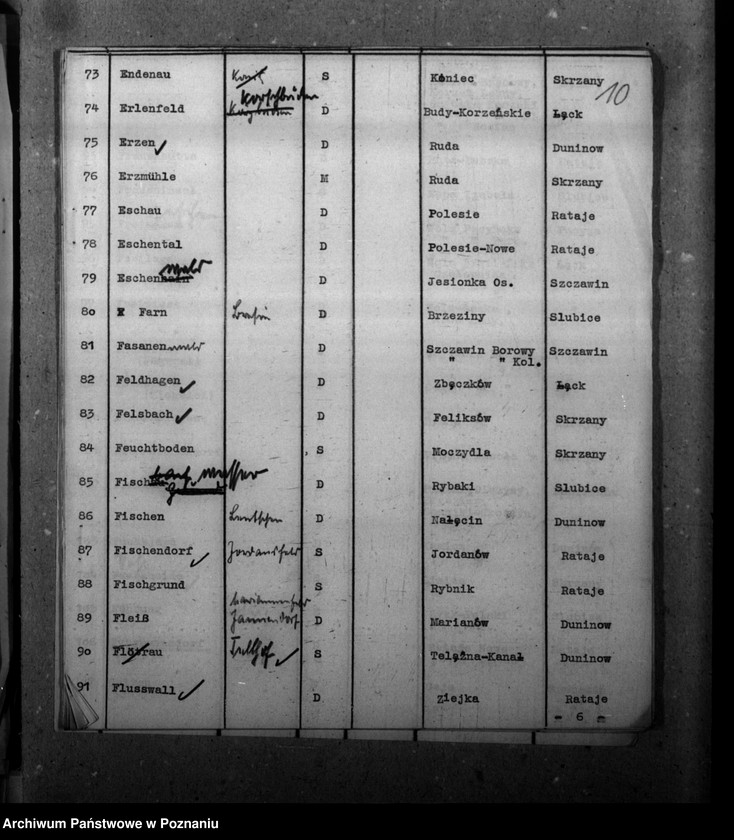 10
73 Endenau S Koniec Skrzany
74 Erlenfeld D Budy-Korzeńskie Łąck
75 Erzen ✓ D Ruda Duninow
76 Erzmühle M Ruda Skrzany
77 Eschau D Polesie Rataje
78 Eschental D Polesie-Nowe Rataje
79 Eschenhain wald D Jesionka Os. Szczawin
80 Farn D Brzeziny Slubice
81 Fasanenwald D Szczawin Borowy Szczawin
" " Kol.
82 Feldhagen ✓ D Zbęczków Łąck
83 Felsbach ✓ D Feliksów Skrzany
84 Feuchtboden S Moczydla Skrzany
85 D Rybaki Slubice
86 Fischen D Nałęcin Duninow
87 Fischendorf ✓ Jordansfeld S Jordanów Rataje
88 Fischgrund S Rybnik Rataje
89 Fleiß D Marianów Duninow
90 Flötrau ✓ S Telążna-Kanał Duninow
91 Flusswall ✓ D Ziejka Rataje
- 6 -
Archiwum Państwowe w Poznaniu